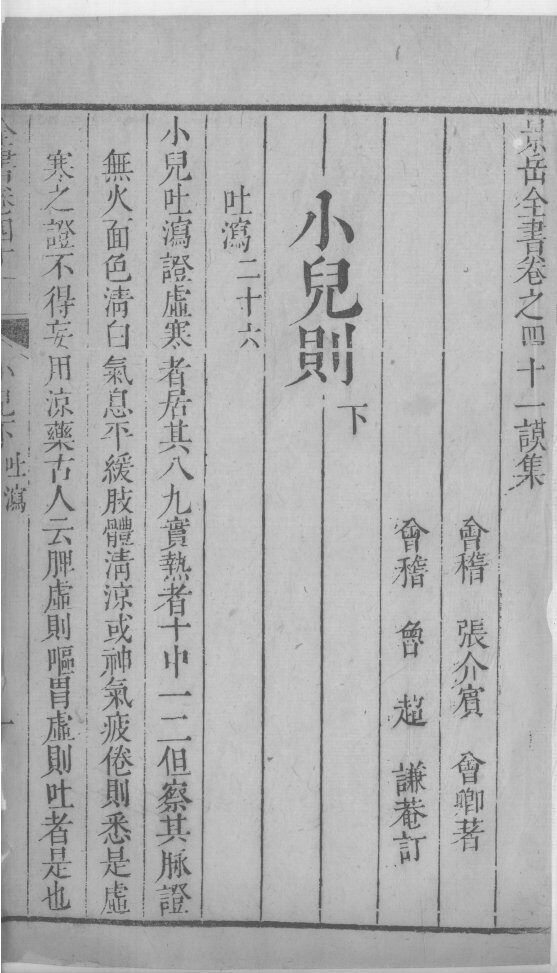 景岳全書卷之四十一謨集
會稽 張介賓 會卿著
會稽 魯 超 謙菴訂
小兒則 下
吐瀉 二十六
小兒吐瀉證虛寒者居其八九實熱者十中一二但察其脉證
無火面色清白氣息平緩肢體清涼或神氣疲倦則悉是虛
寒之證不得妄用涼藥古人云脾虛則嘔胃虛則吐者是也
全書卷四十一 小兒下 吐瀉 一